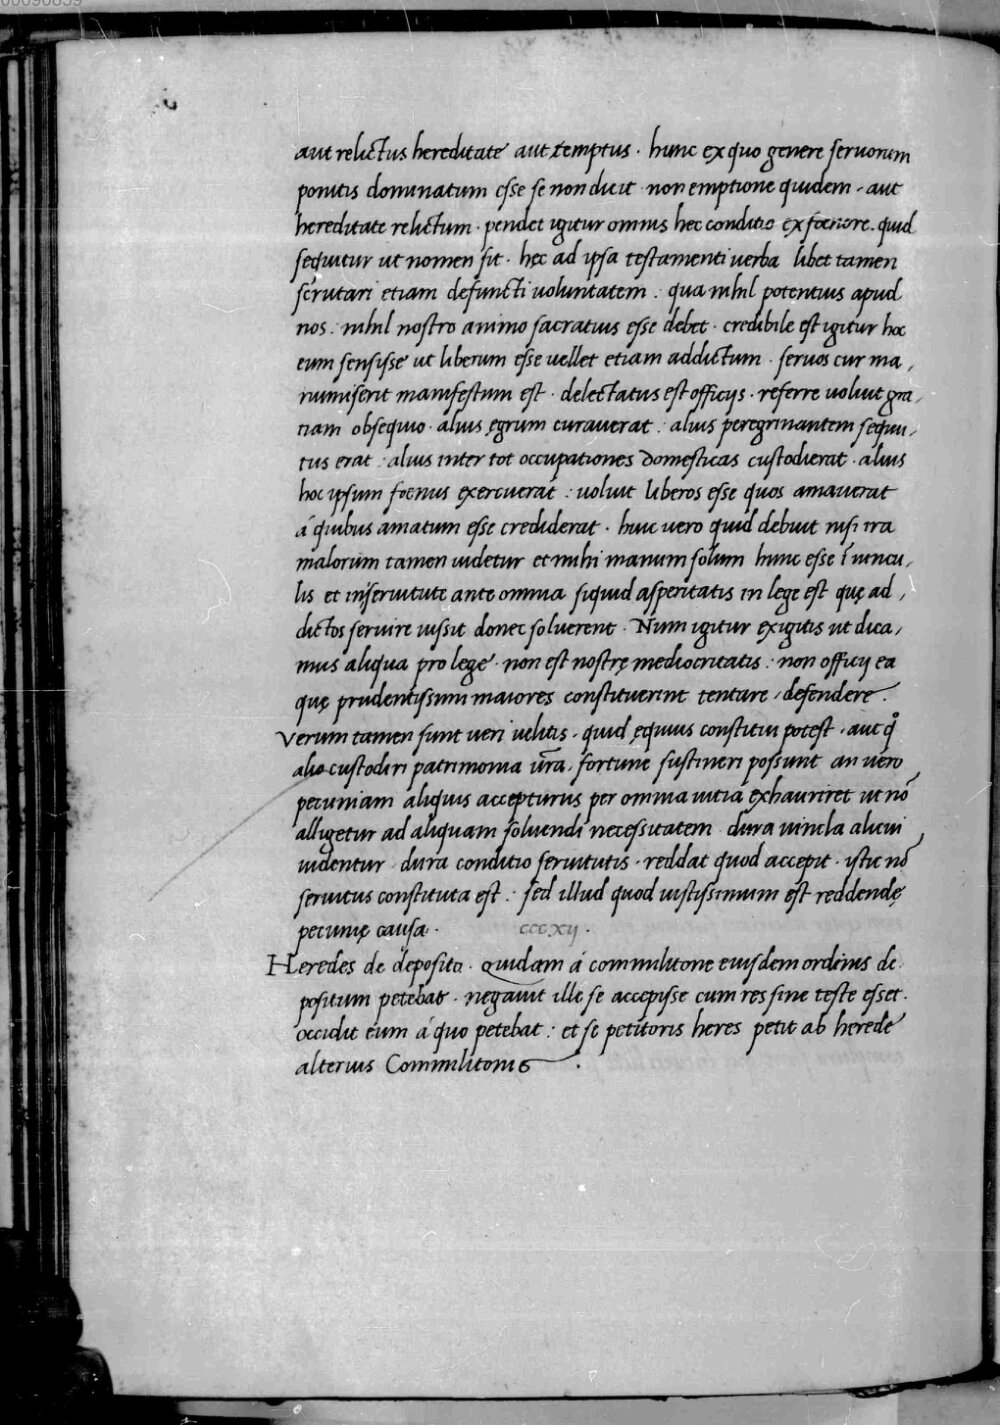 00090859
aut relictus hereditate aut temptus · hunc ex quo genere seruorum
ponitis dominatum esse se non dicit · non emptione quidem · aut
hereditate relictum · pendet igitur omnis hec conditio ex foenore · quid
sequitur ut nomen sit · hęc ad ipsa testamenti uerba libet tamen
scrutari etiam defuncti uoluntatem : qua nihil potentius apud
nos : nihil nostro animo sacratius esse debet · credibile est igitur hoc
eum sensisse ut liberum esse uellet etiam addictum · seruos cur ma,
numiserit manifestum est · delectatus est officijs · referre uoluit gra,
tiam obsequio · alius ęgrum curauerat : alius peregrinantem sequu,
tus erat : alius inter tot occupationes domesticas custodierat · alius
hoc ipsum foenus exercuerat : uoluit liberos esse quos amauerat
á quibus amatum esse crediderat · huic uero quid debuit nisi ira
malorum tamen uidetur et mihi manum solum hunc esse ī uincu,
lis et inseruitute ante omnia siquid asperitatis in lege est quę ad,
dictos seruire iussit donec soluerent · Num igitur exigitis ut dica,
mus aliqua pro lege · non est nostrę mediocritatis : non officij ea
quę prudentissimi maiores constituerint tentare, defendere ·
Verum tamen sunt ueri uelitis · quid ęquius constitui potest · aut q̊
alio custodiri patrimonia ur̄a, fortune sustineri possunt an uero
pecuniam aliquis accepturus per omnia uitia exhauriret ut nō
alligetur ad aliquam soluendi necessitatem dura uincla alicui
uidentur · dura conditio seruitutis · reddat quod accepit · istic nō
seruitus constituta est : sed illud quod iustissimum est reddendę
pecunię causa · cccxij ·
Heredes de deposito · Quidam á commilitone eiusdem ordinis de
positum petebat · negauit ille se accepisse cum res sine teste esset ·
occidit eum á quo petebat : et se petitoris heres petit ab herede
alterius Commilitonis ·